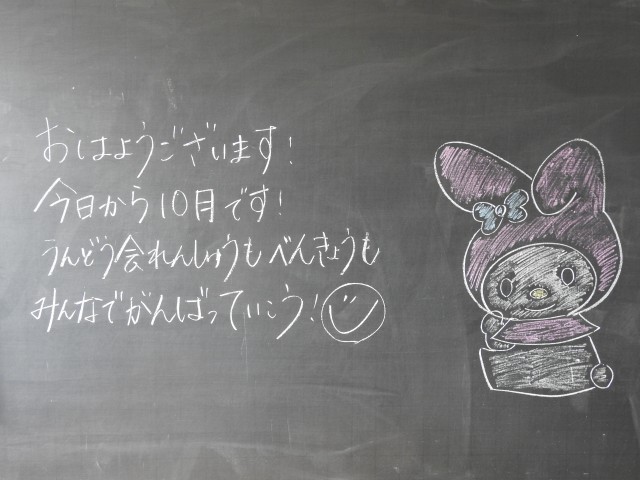 おはようございます!
今日から10月です!
うんどう会れんしゅうもべんきょうも
みんなでがんばっていこう!